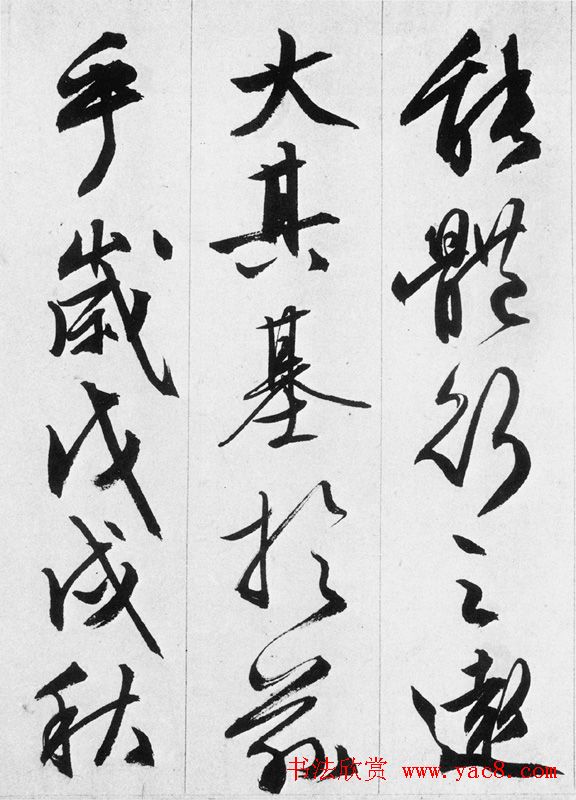 能體行之遠
大其基於茲
乎歲戊戌秋
书法欣赏 www.yac8.com